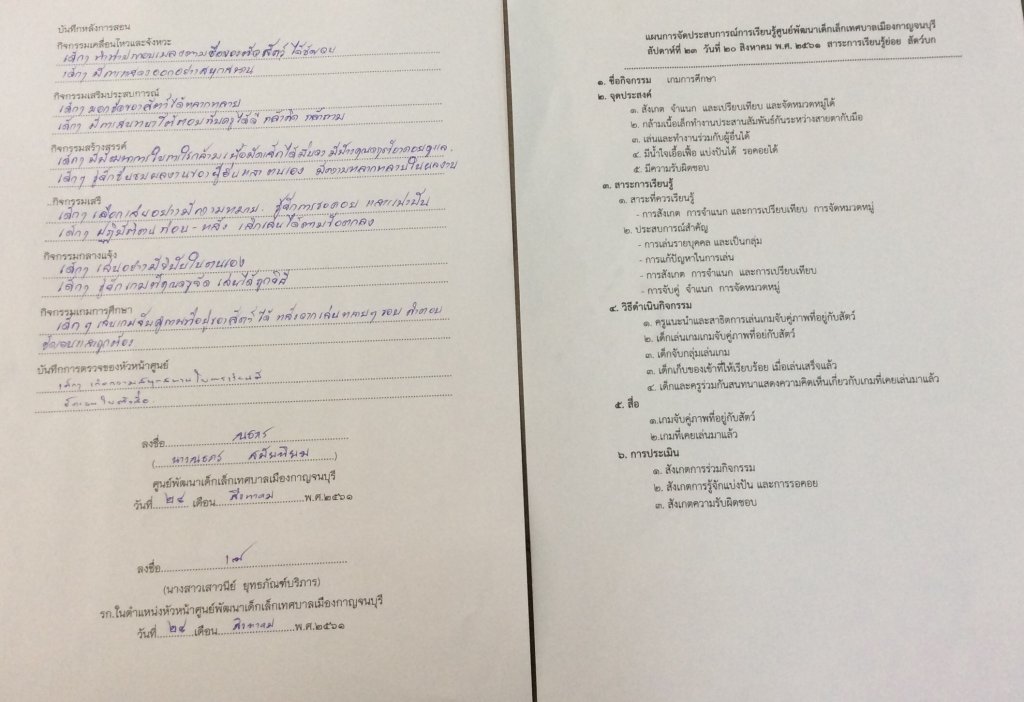 บันทึกหลังการสอน
กิจกรรมเคลื่อนไหวและจังหวะ
เด็กๆ ทำท่าประกอบเพลงตามชื่อของตัวสัตว์ ได้
เด็กๆ มีการแสดงออกอย่างสนุกสนาน
กิจกรรมเสริมประสบการณ์
เด็กๆ บอกชื่อของสัตว์ได้หลากหลาย
เด็กๆ มีการสนทนาโต้ตอบกับครูได้ดี กล้าคิด กล้าถาม
กิจกรรมสร้างสรรค์
เด็กๆ มีพัฒนาการในการใช้กล้ามเนื้อมัดเล็กได้ดีขึ้น มีคุณครูคอยดูแล
เด็กๆ รู้จักชื่นชมผลงานของผู้อื่นและตนเอง มีความหลากหลายในผลงาน
กิจกรรมเสรี
เด็กๆ เลือกเล่นอย่างมีความหมาย รู้จักการรอคอย และแบ่งปัน
เด็กๆ ปฏิบัติตน ก่อน - หลัง เลิกเล่นได้ตามข้อตกลง
กิจกรรมกลางแจ้ง
เด็กๆ เล่นอย่างมีวินัยในตนเอง
เด็กๆ รู้จักเกมที่คุณครูจัด เล่นได้ถูกวิธี
กิจกรรมเกมการศึกษา
เด็กๆ เล่นเกมจับคู่ภาพที่อยู่ของสัตว์ ได้ หลังจากเล่นหลายๆ รอบ คำตอบ
ชัดเจนและถูกต้อง
บันทึกการตรวจของหัวหน้าศูนย์
เด็กๆ เกิดความสนุกสนานในการเรียนรู้
ลงชื่อ ณธกร
(นางณธกร )
ศูนย์พัฒนาเด็กเล็กเทศบาลเมืองกาญจนบุรี
วันที่ ๒๔ เดือน สิงหาคม พ.ศ.๒๕๖๑
ลงชื่อ
(นางสาวเสาวนีย์ ยุทธภัณฑ์บริภาร)
รก.ในตำแหน่งหัวหน้าศูนย์พัฒนาเด็กเล็กเทศบาลเมืองกาญจนบุรี
วันที่ ๒๔ เดือน สิงหาคม พ.ศ.๒๕๖๑
แผนการจัดประสบการณ์การเรียนรู้ศูนย์พัฒนาเด็กเล็กเทศบาลเมืองกาญจนบุรี
สัปดาห์ที่ ๒๓ วันที่ ๒๐ สิงหาคม พ.ศ. ๒๕๖๑ สาระการเรียนรู้ย่อย สัตว์บก
๑. ชื่อกิจกรรม เกมการศึกษา
๒. จุดประสงค์
๑. สังเกต จำแนก และเปรียบเทียบ และจัดหมวดหมู่ได้
๒. กล้ามเนื้อเล็กทำงานประสานสัมพันธ์กันระหว่างสายตากับมือ
๓. เล่นและทำงานร่วมกับผู้อื่นได้
๔. มีน้ำใจเอื้อเฟื้อ แบ่งปันได้ รอคอยได้
๕. มีความรับผิดชอบ
๓. สาระการเรียนรู้
๑. สาระที่ควรเรียนรู้
- การสังเกต การจำแนก และการเปรียบเทียบ การจัดหมวดหมู่
๒. ประสบการณ์สำคัญ
- การเล่นรายบุคคล และเป็นกลุ่ม
- การแก้ปัญหาในการเล่น
- การสังเกต การจำแนก และการเปรียบเทียบ
- การจับคู่ จำแนก การจัดหมวดหมู่
๔. วิธีดำเนินกิจกรรม
๑. ครูแนะนำและสาธิตการเล่นเกมจับคู่ภาพที่อยู่กับสัตว์
๒. เด็กเล่นเกมเกมจับคู่ภาพที่อยู่กับสัตว์
๓. เด็กจับกลุ่มเล่นเกม
๓. เด็กเก็บของเข้าที่ให้เรียบร้อย เมื่อเล่นเสร็จแล้ว
๔. เด็กและครูร่วมกันสนทนาแสดงความคิดเห็นเกี่ยวกับเกมที่เคยเล่นมาแล้ว
๕. สื่อ
๑.เกมจับคู่ภาพที่อยู่กับสัตว์
๒.เกมที่เคยเล่นมาแล้ว
๖. การประเมิน
๑. สังเกตการร่วมกิจกรรม
๒. สังเกตการรู้จักแบ่งปัน และการรอคอย
๓. สังเกตความรับผิดชอบ